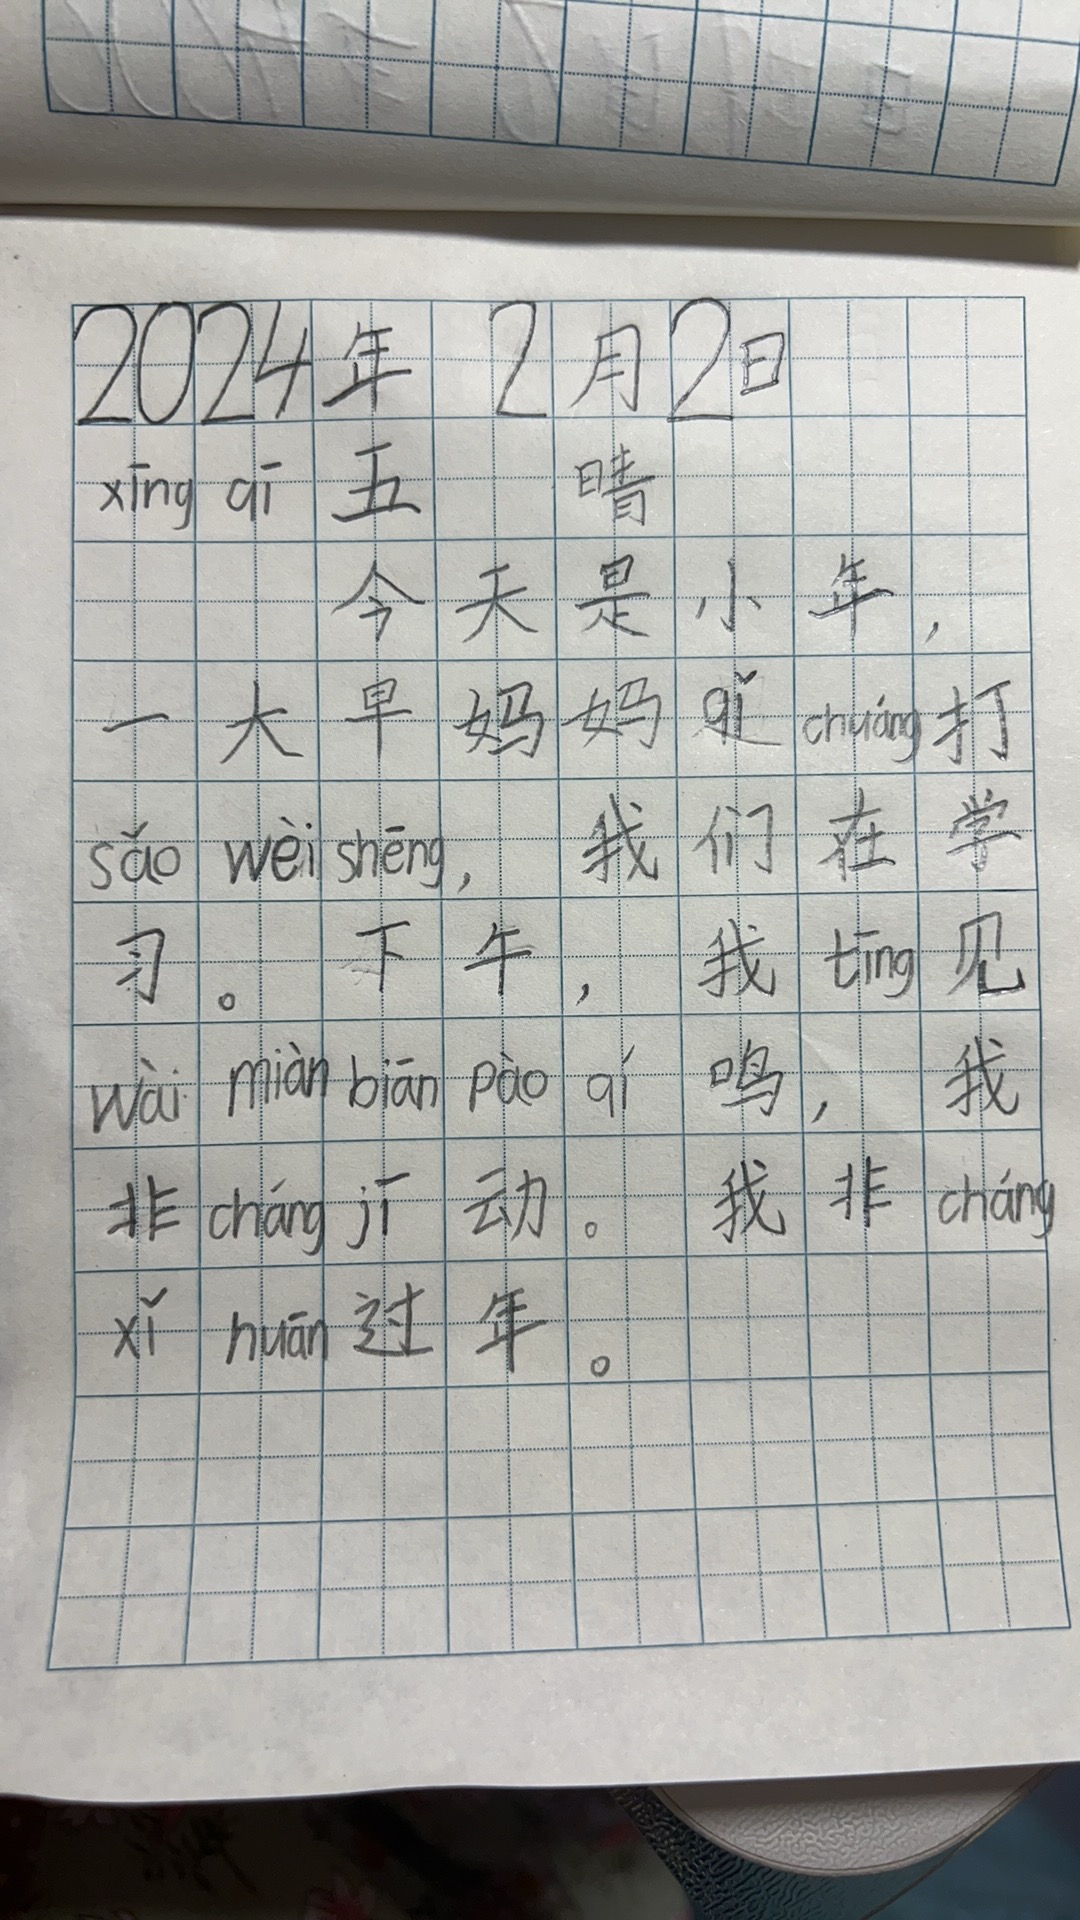 2024年 2月2日
xīng qī 五 晴
今天是小年，
一大早妈妈 qǐ chuáng 打
sǎo wèi shēng， 我们在学
习。下午，我 tīng 见
wài miàn biān pào qí 鸣，我
非 cháng jī 动。我非 cháng
xǐ huān 过年。